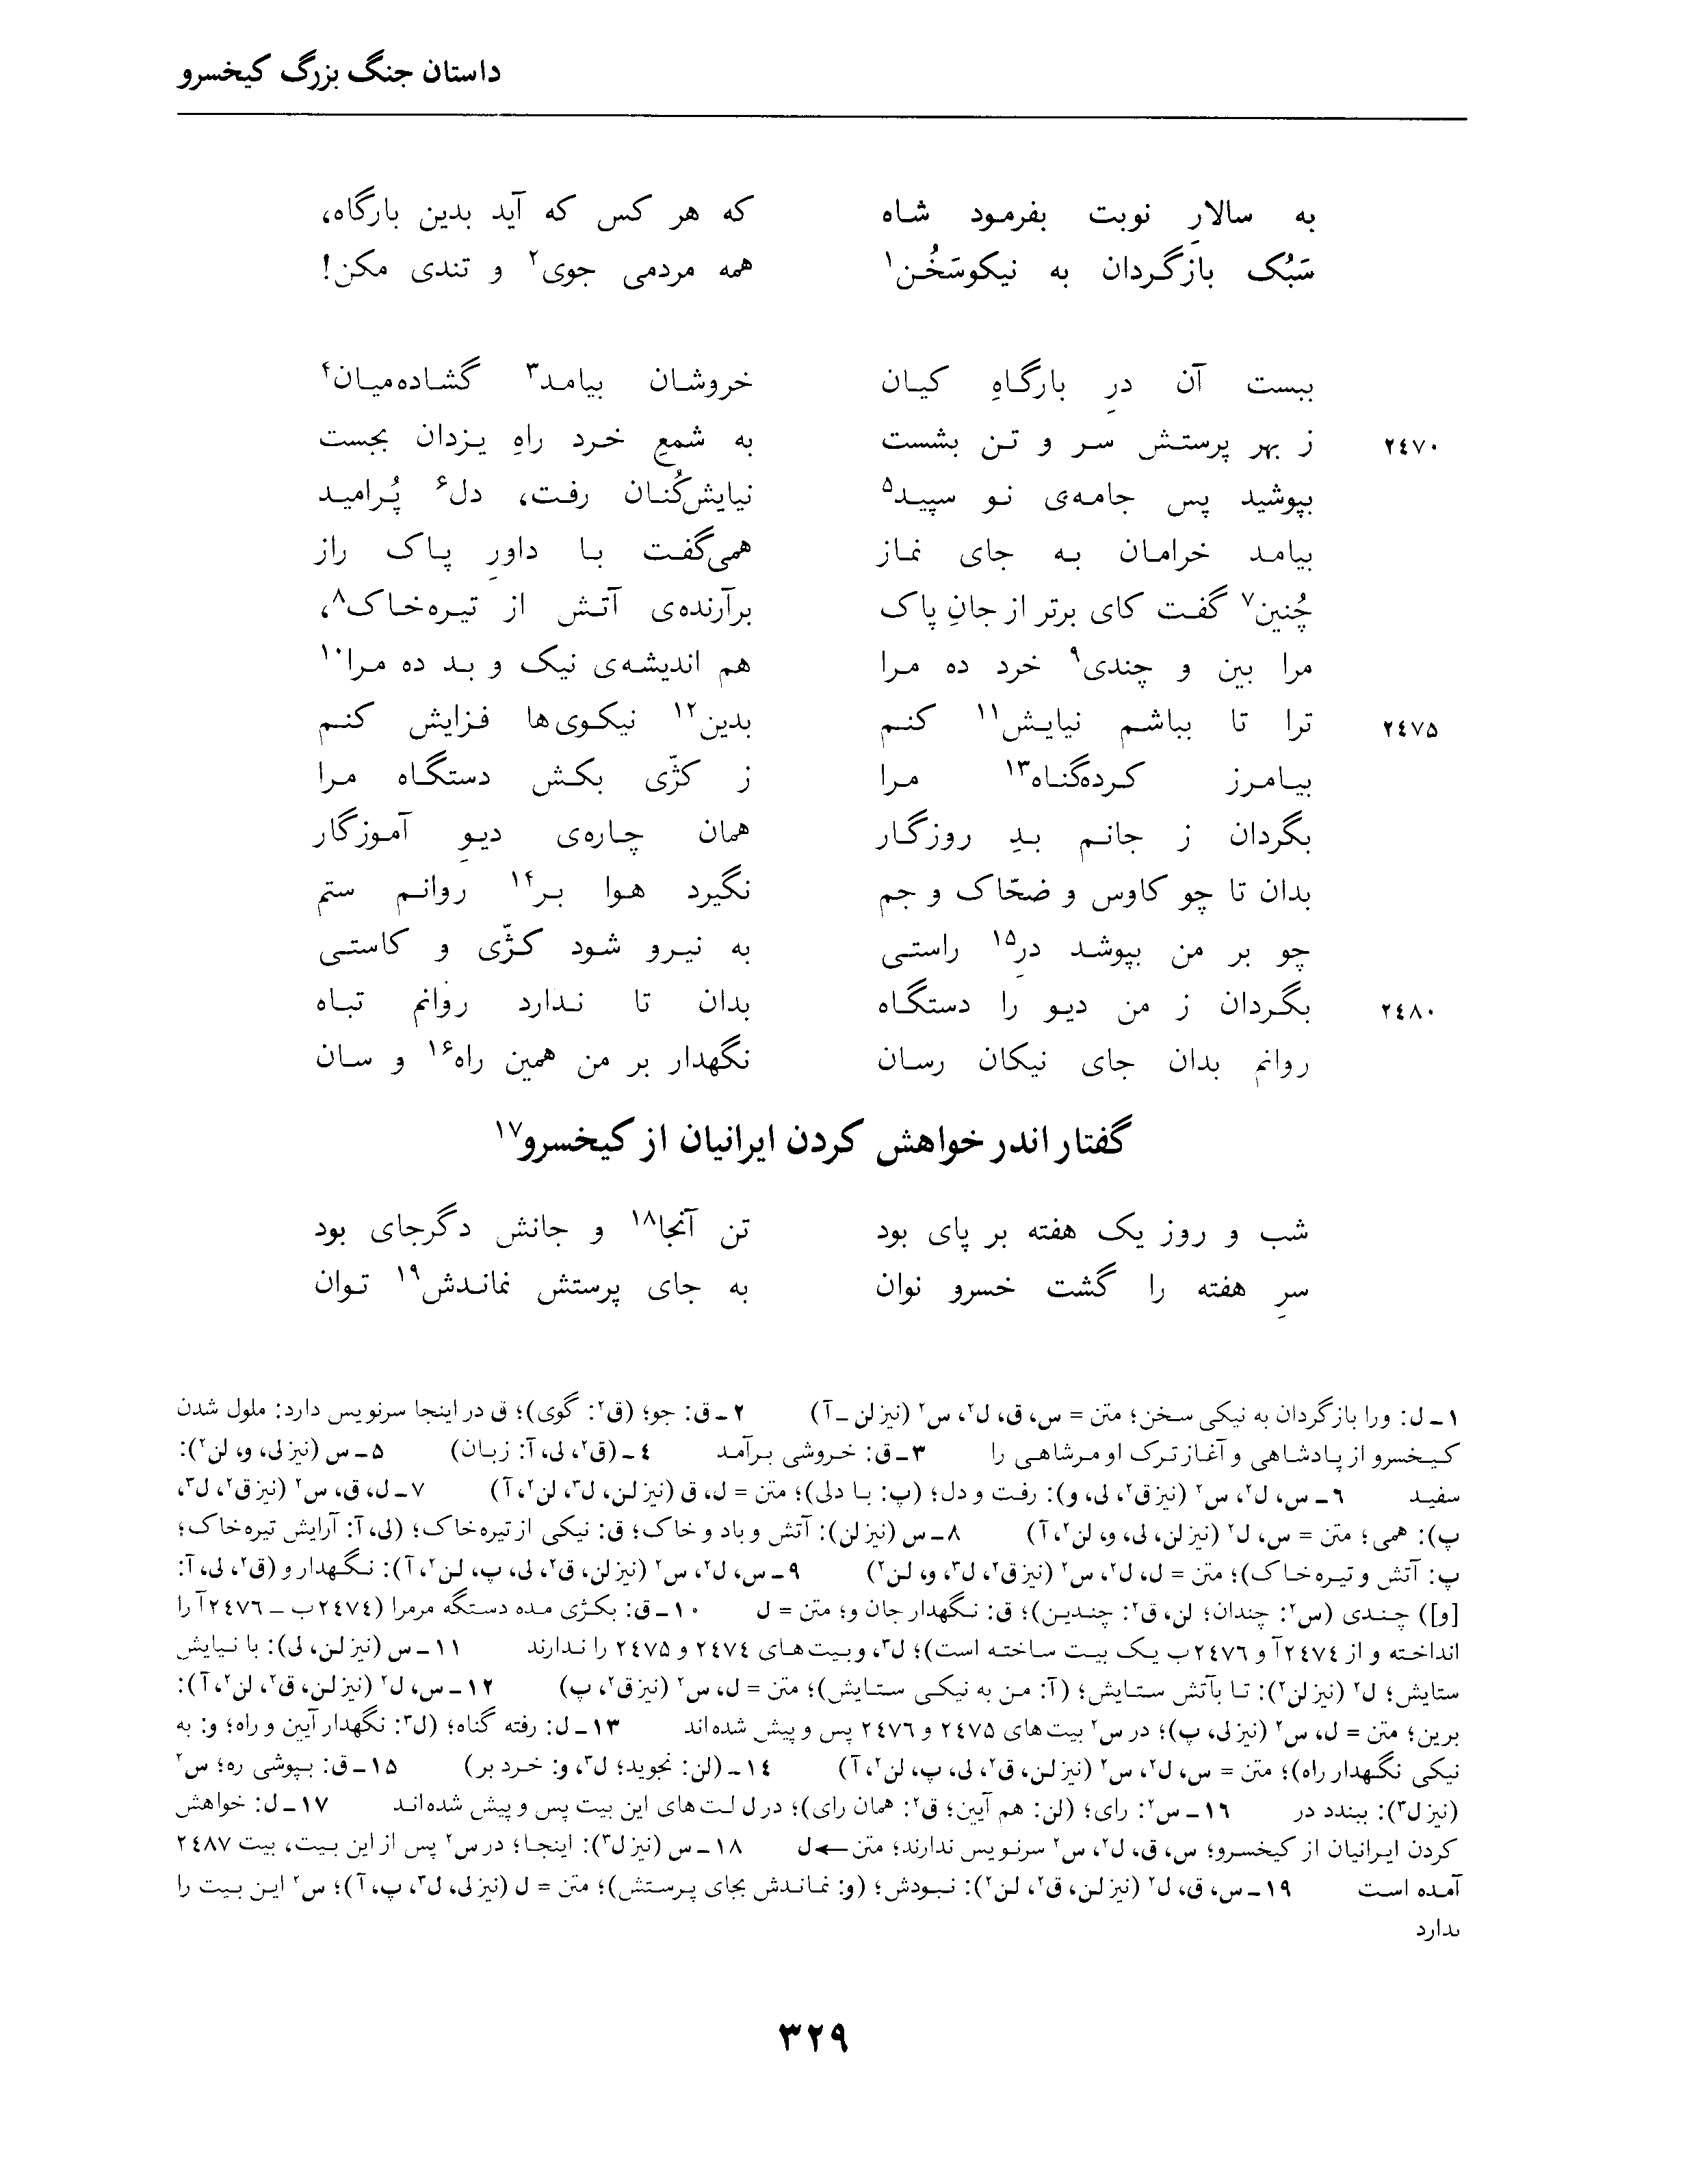 داستان جنگ بزرگ کیخسرو
به سالارِ نوبت بفرمود شاه که هر کس که آید بدین بارگاه،
سَبُک بازگردان به نیکوسَخُن۱ همه مردمی جوی۲ و تندی مکن!
ببست آن درِ بارگاهِ کیان خروشان بیامد۳ گشاده‌میان۴
۲٤۷۰ ز بهر پرستش سر و تن بشست به شمعِ خرد راهِ یزدان بجست
بپوشید پس جامه‌ی نو سپید۵ نیایش‌کُنان رفت، دل۶ پُرامید
بیامد خرامان به جای نماز همی‌گفت با داورِ پاک راز
چُنین۷ گفت کای برتر از جانِ پاک برآرنده‌ی آتش از تیره‌خاک۸،
مرا بین و چندی۹ خرد ده مرا هم اندیشه‌ی نیک و بد ده مرا۱۰
۲٤۷۵ ترا تا بباشم نیایش۱۱ کنم بدین۱۲ نیکوی‌ها فزایش کنم
بیامرز کرده‌گناه۱۳ مرا ز کژّی بکش دستگاه مرا
بگردان ز جانم بدِ روزگار همان چاره‌ی دیوِ آموزگار
بدان تا چو کاوس و ضحّاک و جم نگیرد هوا بر۱۴ روانم ستم
چو بر من بپوشد درِ۱۵ راستی به نیرو شود کژّی و کاستی
۲٤۸۰ بگردان ز من دیو را دستگاه بدان تا ندارد روانم تباه
روانم بدان جای نیکان رسان نگهدار بر من همین راه۱۶ و سان
گفتار اندر خواهش کردن ایرانیان از کیخسرو۱۷
شب و روز یک هفته بر پای بود تن آنجا۱۸ و جانش دگرجای بود
سرِ هفته را گشت خسرو نوان به جای پرستش نماندش۱۹ توان
۱ـ ل: ورا بازگردان به نیکی سخن؛ متن = س، ق، ل۲، س۲ (نیز لن ـ آ) ۲ـ ق: جو؛ (ق۲: گوی)؛ ق در اینجا سرنویس دارد: ملول شدن
کیخسرو از پادشاهی و آغاز ترک او مرشاهی را ۳ـ ق: خروشی برآمد ٤ـ (ق۲، لی، آ: زبان) ۵ـ س (نیز لی، و، لن۲):
سفید ۶ـ س، ل۲، س۲ (نیز ق۲، لی، و): رفت و دل؛ (پ: با دلی)؛ متن = ل، ق (نیز لن، ل۳، لن۲، آ) ۷ـ ل، ق، س۲ (نیز ق۲، ل۳،
پ): همی؛ متن = س، ل۲ (نیز لن، لی، و، لن۲، آ) ۸ـ س (نیز لن): آتش و باد و خاک؛ ق: نیکی از تیره خاک؛ (لی، آ: آرایش تیره خاک؛
پ: آتش و تیره خاک)؛ متن = ل، ل۲، س۲ (نیز ق۲، ل۳، و، لن۲) ۹ـ س، ل۲، س۲ (نیز لن، ق۲، لی، پ، لن۲، آ): نگهدار و (ق۲، لی، آ:
[و]) چندی (س۲: چندان؛ لن، ق۲: چندین)؛ ق: نگهدار جان و؛ متن = ل ۱۰ـ ق: بکژی مده دستگه مرمرا (۲٤۷٤ب ـ ۲٤۷۶آ را
انداخته و از ۲٤۷٤آ و ۲٤۷۶ب یک بیت ساخته است)؛ ل۳، و بیت‌های ۲٤۷٤ و ۲٤۷۵ را ندارند ۱۱ـ س (نیز لن، لی): با نیایش
ستایش؛ ل۲ (نیز لن۲): تا بآتش ستایش؛ (آ: من به نیکی ستایش)؛ متن = ل، س۲ (نیز ق۲، پ) ۱۲ـ س، ل۲ (نیز لن، ق۲، لن۲، آ):
برین؛ متن = ل، س۲ (نیز لی، پ)؛ در س۲ بیت‌های ۲٤۷۵ و ۲٤۷۶ پس و پیش شده‌اند ۱۳ـ ل: رفته گناه؛ (ل۳: نگهدار آیین و راه؛ و: به
نیکی نگهدار راه)؛ متن = س، ل۲، س۲ (نیز لن، ق۲، لی، پ، لن۲، آ) ۱٤ـ (لن: نجوید؛ ل۳، و: خرد بر) ۱۵ـ ق: بپوشی ره؛ س۲
(نیز ل۳): ببندد در ۱۶ـ س۲: رای؛ (لن: هم آیین؛ ق۲: همان رای)؛ در ل لت‌های این بیت پس و پیش شده‌اند ۱۷ـ ل: خواهش
کردن ایرانیان از کیخسرو؛ س، ق، ل۲، س۲ سرنویس ندارند؛ متن ← ل ۱۸ـ س (نیز ل۳): اینجا؛ در س۲ پس از این بیت، بیت ۲٤۸۷
آمده است ۱۹ـ س، ق، ل۲ (نیز لن، ق۲، لن۲): نبودش؛ (و: نماندش بجای پرستش)؛ متن = ل (نیز لی، ل۳، پ، آ)؛ س۲ این بیت را
ندارد
۳۲۹